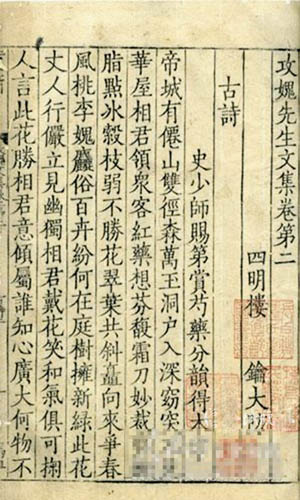 攻媿先生文集卷第二
四明樓 鑰大防
古詩
史少師賜第賞芍藥分韻得木
帝城有僊山雙徑森萬王洞户入深窈突
華屋相君領衆客紅藥想芬馥霜刀妙裁
脂點冰縠枝弱不勝花翠葉共斜矗向來爭春
風桃李媿麤俗百卉紛何在庭樹擁新緑此花
丈人行儼立見幽獨相君戴花笑和氣俱可掬
人言此花勝相君意傾屬誰知心廣大何物不